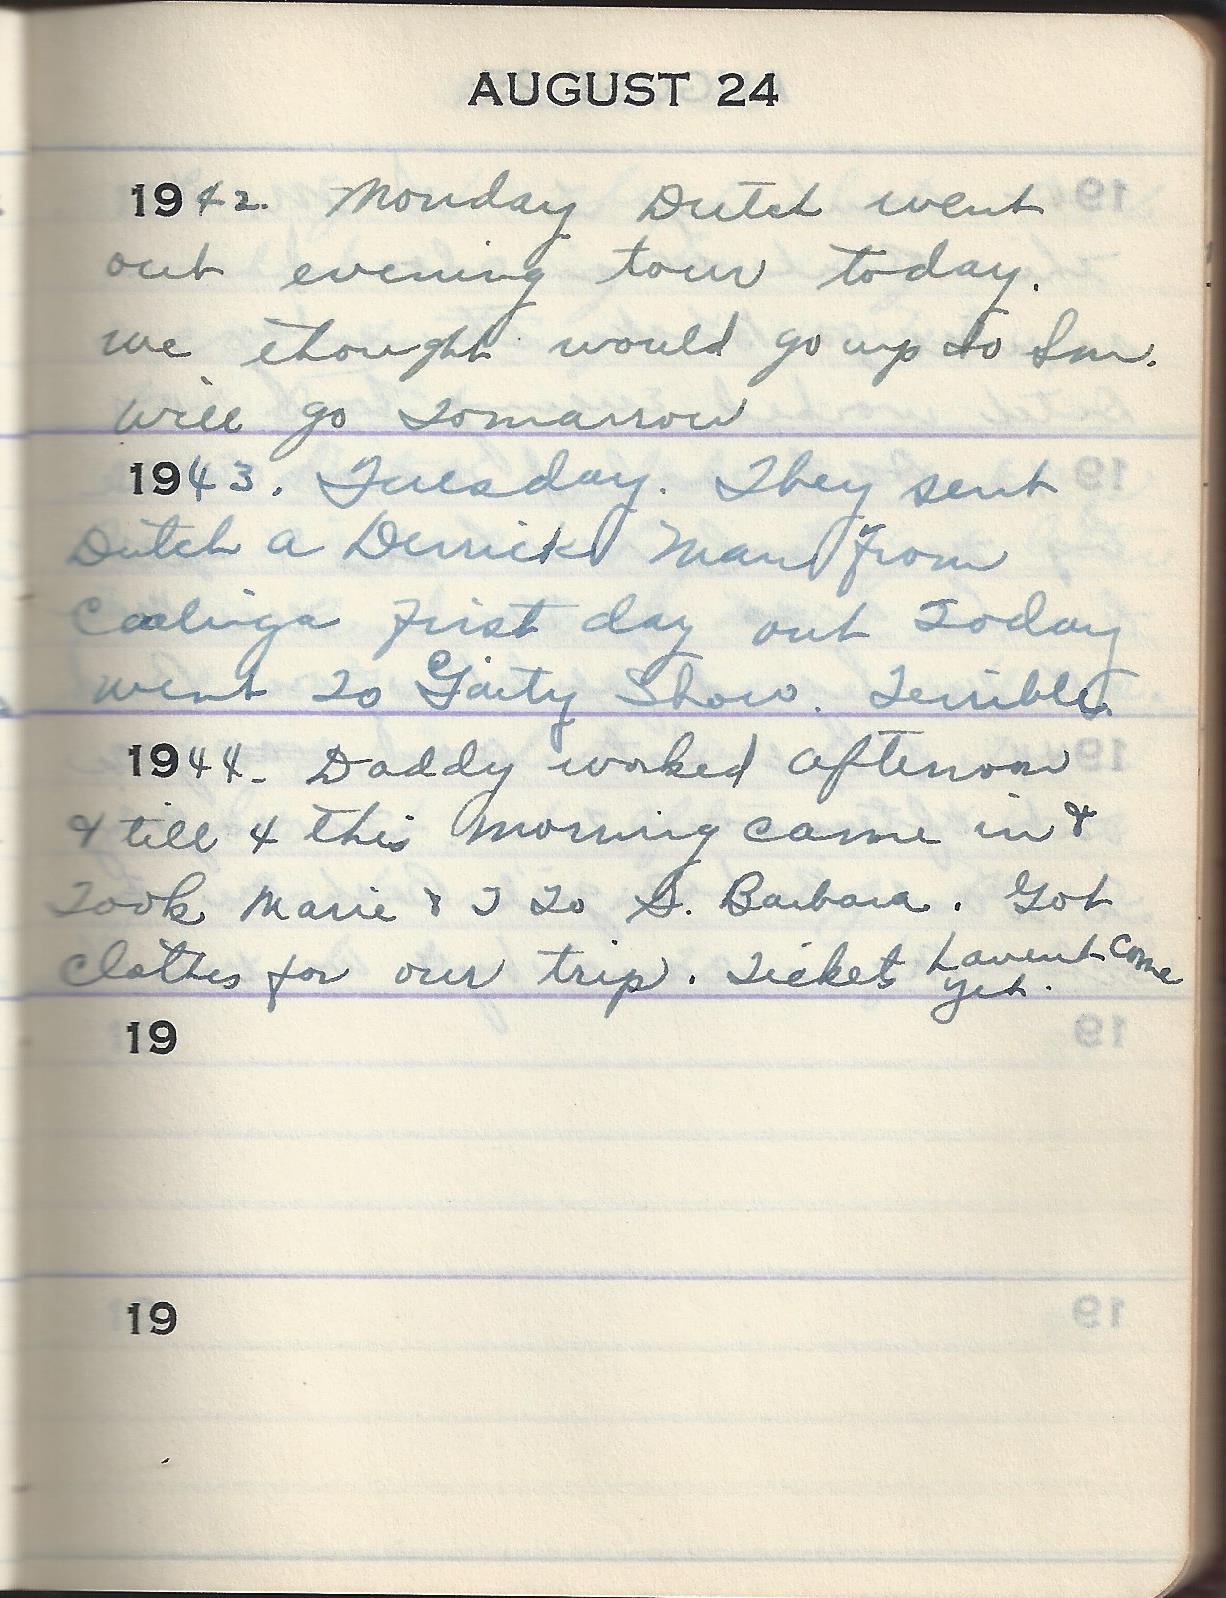 AUGUST 24
1942. Monday Dutch went
out evening tour today.
we thought would go up to Sm.
will go Tomarrow
1943. Tuesday. They sent
Dutch a Derrick Man from
Coalinga first day out Today
went To Gaity Show. Terrible
1944. Daddy worked afternoon
& till 4 this morning came in &
Took Marie & I To S. Barbara. Got
clothes for our trip. Tickets havent come
yet.
19
19